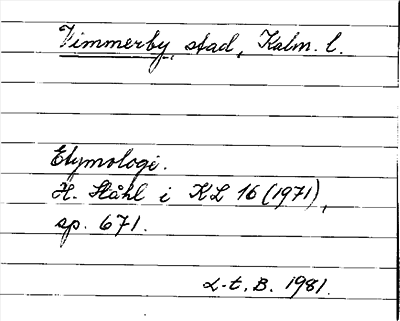 Vimmerby, stad, Kalm. l.
Etymologi.
H. Ståhl i KL 16 (1971),
sp. 671.
L-t. B. 1981.